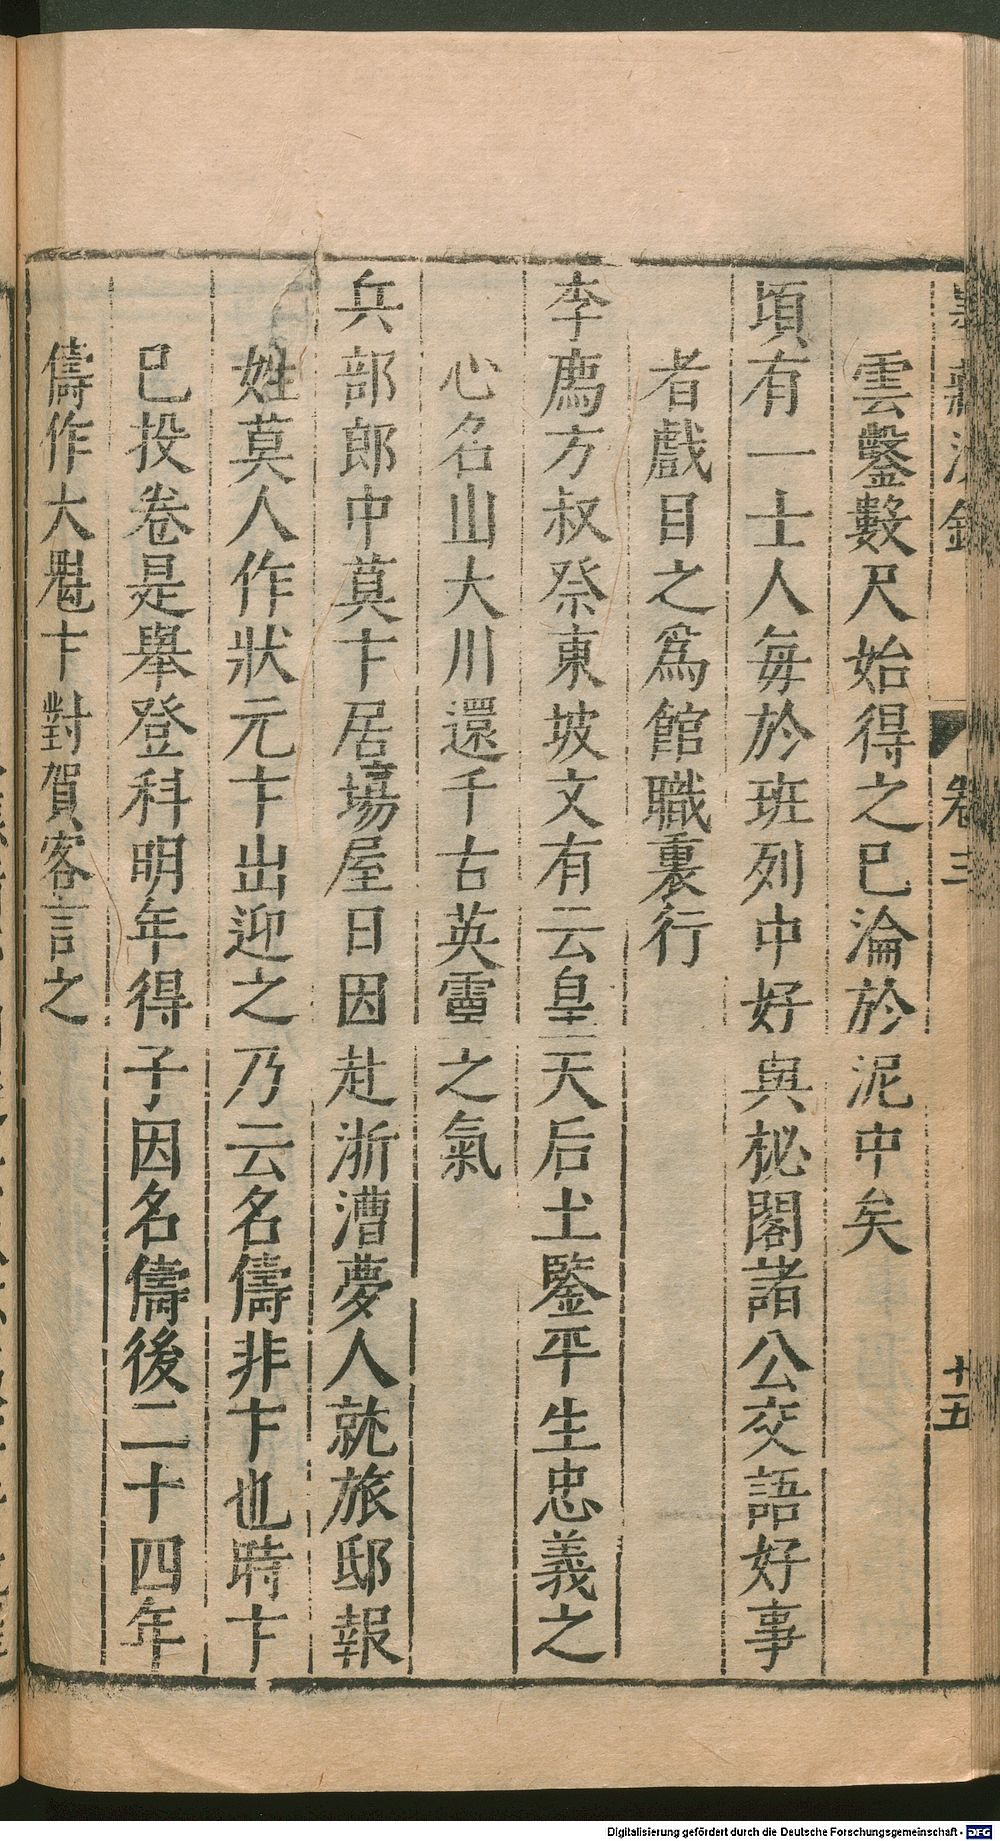 卷三
十五
雲鑿數尺始得之已淪於泥中矣
頃有一士人每於班列中好與秘閣諸公交語好事
者戲目之爲館職裏行
李廌方叔祭東坡文有云皇天后土鑒平生忠義之
心名山大川還千古英靈之氣
兵部郎中莫卞居場屋日因赴浙漕夢人就旅邸報
姓莫人作狀元卞出迎之乃云名儔非卞也時卞
已投卷是舉登科明年得子因名儔後二十四年
儔作大魁卞對賀客言之
Digitalisierung gefördert durch die Deutsche Forschungsgemeinschaft - DFG